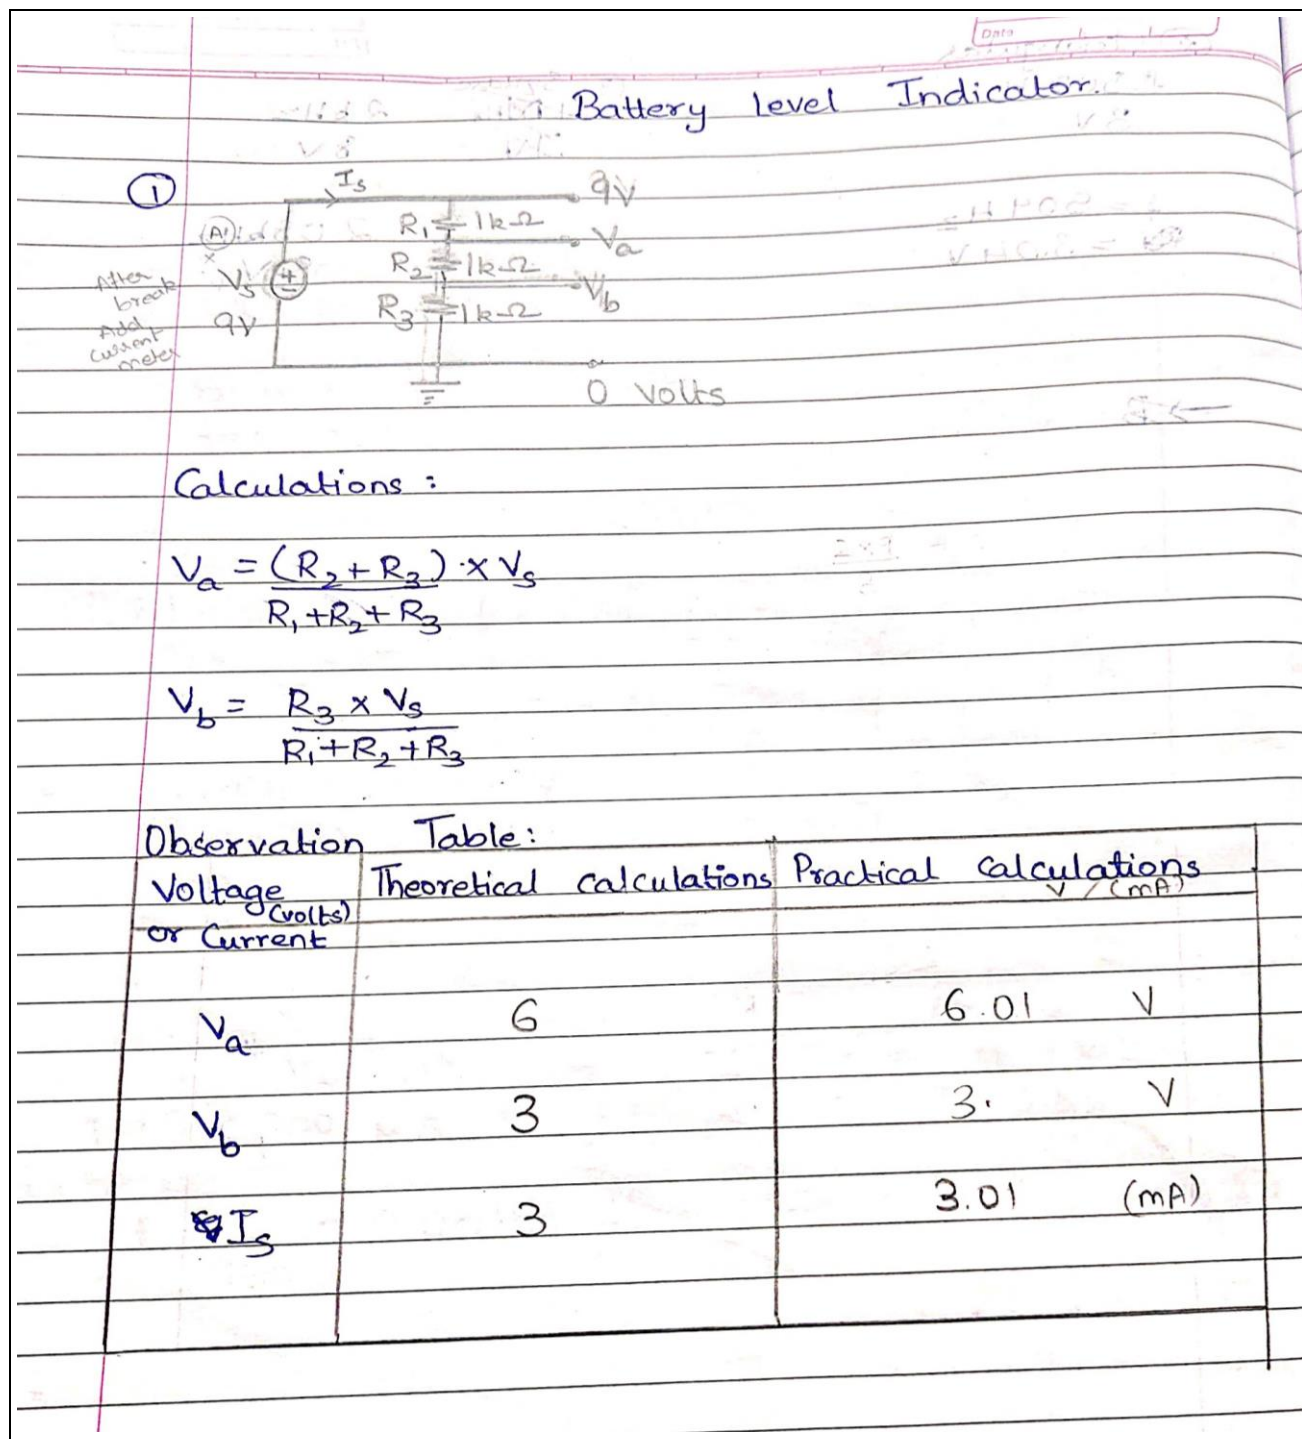 Date
Battery level Indicator.
1
Is
9V
R1 1kΩ
Va
A1
R2 1kΩ
Vs
Vb
After
break
Add
Current
meter
9V
R3 1kΩ
0 Volts
Calculations :
Va = (R2 + R3) × Vs
R1 + R2 + R3
Vb = R3 × Vs
R1 + R2 + R3
Observation Table:
Voltage (volts)
or Current
Theoretical calculations
Practical calculations
V / (mA)
Va 6 6.01 V
Vb 3 3. V
Is 3 3.01 (mA)